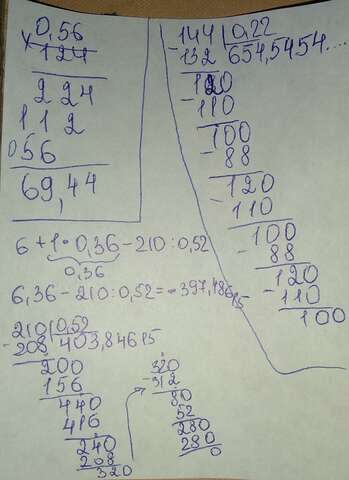 0,56
× 124
224
112
056
69,44
144 | 0,22
-132 | 654,5454....
120
-110
100
-88
120
-110
100
-88
120
-110
100
6 + 1 · 0,36 - 210 : 0,52
0,36
6,36 - 210 : 0,52 = -397,48615
210 | 0,52
-208 | 403,84615
200
156
440
416
240
208
320
320
-312
80
52
280
280
0